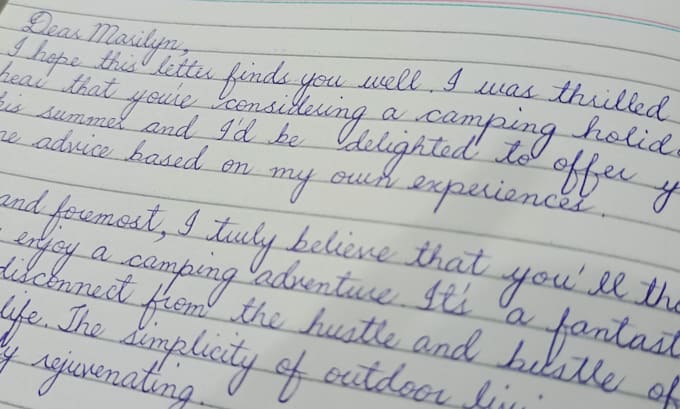 Dear Marilyn,
I hope this letter finds you well. I was thrilled
hear that you're considering a camping
summer and I'd be delighted to offer
advice based on my own experiences.
and foremost, I truly believe that you'll
enjoy a camping adventure. It's a
disconnect from the hustle and bustle of
life. The simplicity of outdoor
rejuvenating.